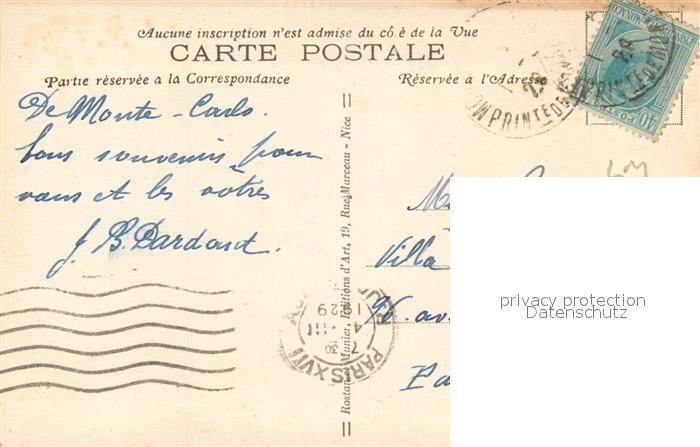 Aucune inscription n'est admise du cô.é de la Vue
CARTE POSTALE
Partie réservée a la Correspondance
Réservée à l'Adresse
De Monte-Carlo.
bons souvenirs pour
vous et les vôtres
J. B. Dardant.
Rostan et Munier, Editions d'Art, 19, Rue Marceau - Nice
Villa
av.
Pa
MONACO
POSTES
40
28
PRINTEDE
PARIS XVII
7 30
4 · III
1929
privacy protection
Datenschutz